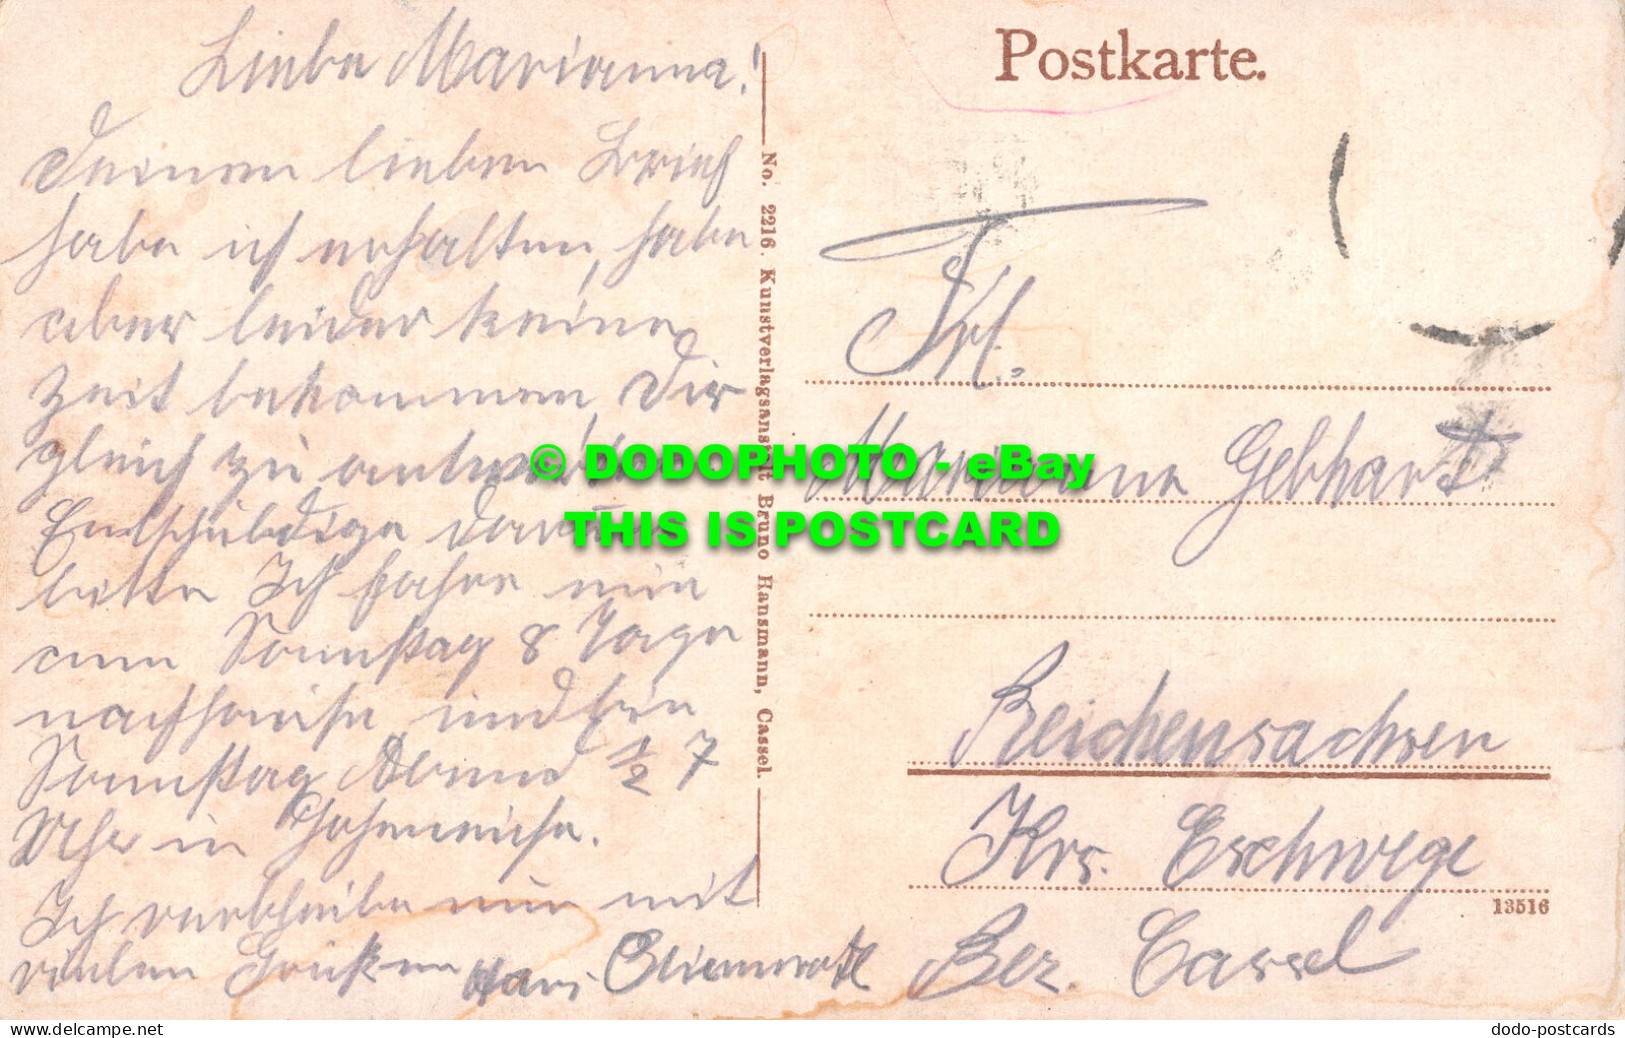 Liebe Marianna!
Deinen lieben Brief
habe ich erhalten, habe
aber leider keine
Zeit bekommen, Dir
gleich zu
Entschuldige
bitte Ich fahre nun
am Sonntag 8 Tage
und bin
Sonntag Abend 1/2 7
Uhr in
Ich verbleibe nun mit
vielen
Postkarte.
No. 2216. Kunstverlagsanstalt Bruno Hansmann, Cassel.
Frl.
Marianna Gebhardt
Reichensachsen
Krs. Eschwege
Bez. Cassel
13516
© DODOPHOTO - eBay
THIS IS POSTCARD
www.delcampe.net
dodo-postcards